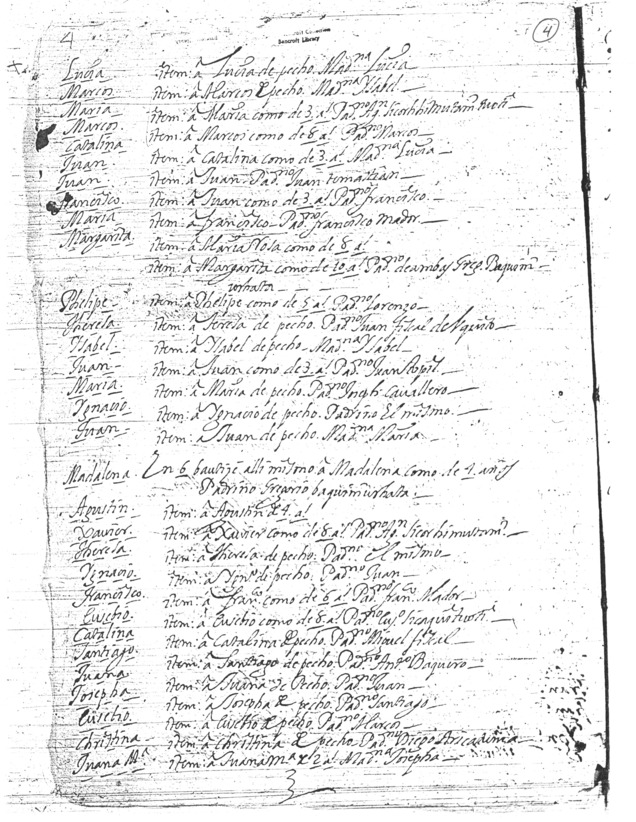 4
Bancroft Library
4
Lucia item: à Lucia de pecho. Mad.na Lucia
Marcos item: à Marcos de pecho. Mad.na Ysabel
Maria item: à Maria como de 3. a.s Pad.no
Marcos. item: à Marcos como de 8. a.s Pad.no Marcos
Catalina item: à Catalina como de 3. a.s Mad.na Lucia
Juan item: à Juan. Pad.no Juan
Juan item: à Juan como de 3. a.s Pad.no Francisco.
Francisco. item: à Francisco. Pad.no Francisco mador.
Maria item: à Maria como de 8 a.s
Margarita. item: à Margarita como de 10 a.s Pad.no de ambas Greg.
Phelipe item: à Phelipe como de 5 a.s Pad.no Lorenzo
Theresa item: à Teresa de pecho. Pad.no Juan fiscal de
Ysabel item: à Ysabel de pecho. Mad.na Ysabel
Juan item: à Juan como de 3. a.s Pad.no Juan
Maria. item: à Maria de pecho. Pad.no Joseph Cavallero
Ygnacio. item: à Ygnacio de pecho. Padrino El mismo.
Juan. item: à Juan de pecho. Mad.na Maria.
Madalena. En 6 bautizè alli mismo à Madalena como de 4 años
Padrino Gregorio
Agustin. item: à Agustin de 4. a.s
Xavier. item: à Xavier como de 8 a.s Pad.no
Theresa. item: à Theresa de pecho. Pad.no el mismo
Ygnacio. item: à Ygn.o de pecho. Pad.no Juan
Francisco. item: à Fran.co como de 6 a.s Pad.no Fran.co Mador
Eusebio item: à Eusebio como de 8 a.s Pad.no
Catalina item: à Catalina de pecho. Pad.no Miguel fiscal
Santiago. item: à Santiago de pecho. Pad.no Ant.o Baquero
Juana item: à Juana de Pecho. Pad.no Juan
Josepha item: à Josepha de pecho. Pad.no Santiago
Eusebio. item: à Eusebio de pecho. Pad.no Marcos
Christina item: à Christina de pecho. Pad.no Diego
Juana M.a item: à Juana M.a de 2 a.s Mad.na Josepha